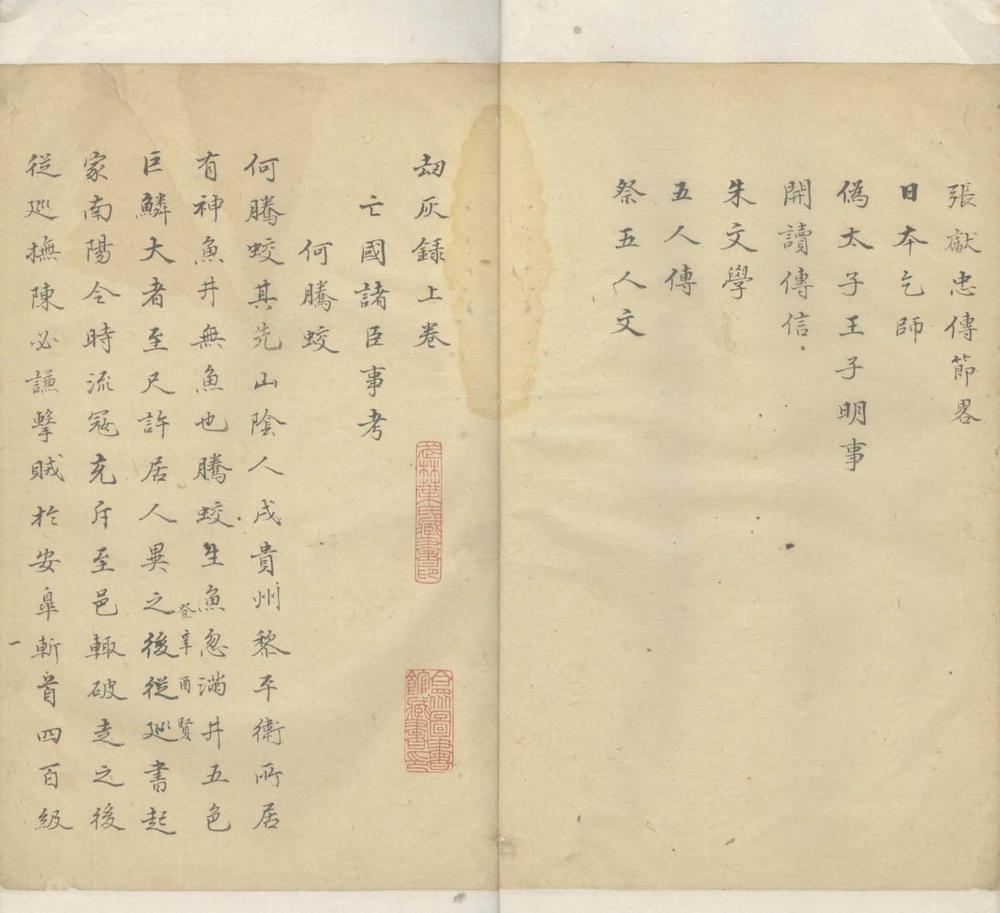 張獻忠傳節畧
日本乞師
偽太子王子明事
開讀傳信
朱文學
五人傳
祭五人文
刼灰録上卷
亡國諸臣事考
何騰蛟
何騰蛟其先山陰人戍貴州黎平衛所居
有神魚井無魚也騰蛟生魚忽滿井五色
登辛酉賢
巨鱗大者至尺許居人異之後従廵書起
家南陽令時流冦充斥至邑輙破走之後
従廵撫陳必謙擊賊於安臯斬首四百級
一
武林葉氏藏書印